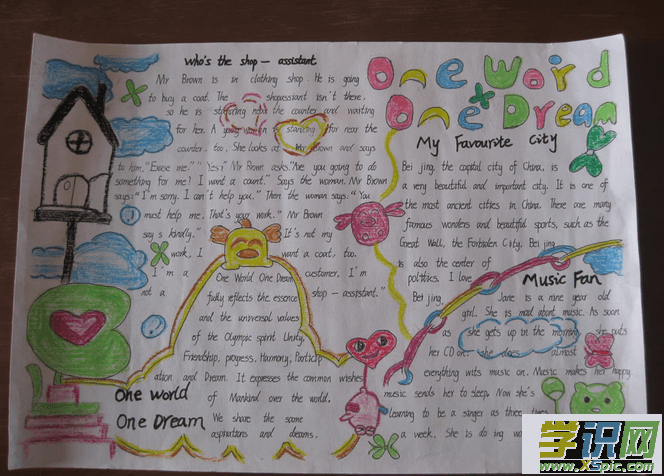 Who's the shop - assistant
Mr Brown is in clothing shop. He is going
to buy a coat. The shopassiant isn't there.
so he is standing near the counter and waiting
for her. A young woman is standing for near the
counter. too. She looks at Mr Brown and says
to him, "Excuse me." "Yes?" Mr Brown asks. "Are you going to do
something for me? I want a count." Says the woman. Mr Brown
says: "I'm sorry. I can't help you." Then the woman says: "You
must help me. That's your work." Mr Brown
say s kindly." It's not my
work, I want a coat, too.
I'm a customer. I'm
not a shop - assistant."
One Word
One Dream
My Favourite City
Bei jing, the capital city of China, is
a very beautiful and important city. It is one of
the most ancient cities in China. There are many
famous wonders and beautiful sports, such as the
Great Wall, the Forbiden City. Bei jing
is also the center of
politics. I love
Bei jing,
One World One Dream
fully reflects the essence
and the universal values
of the Olympic spirit Unity,
Friendship, progress, Harmony, Particip
ation and Dream. It expresses the common wishes
of Mankind over the world.
We share the same
aspirations and dreams.
One world
One Dream
Music Fan
Jane is a nine year old
girl. She is mad about music. As soon
as she gets up in the morning, she puts
her CD on. she does almost
everything wits music on. Music makes her happy
music sends her to sleep. Now she's
learning to be a singer as three times
a week. She is do ing
学识网
www.XSpic.com